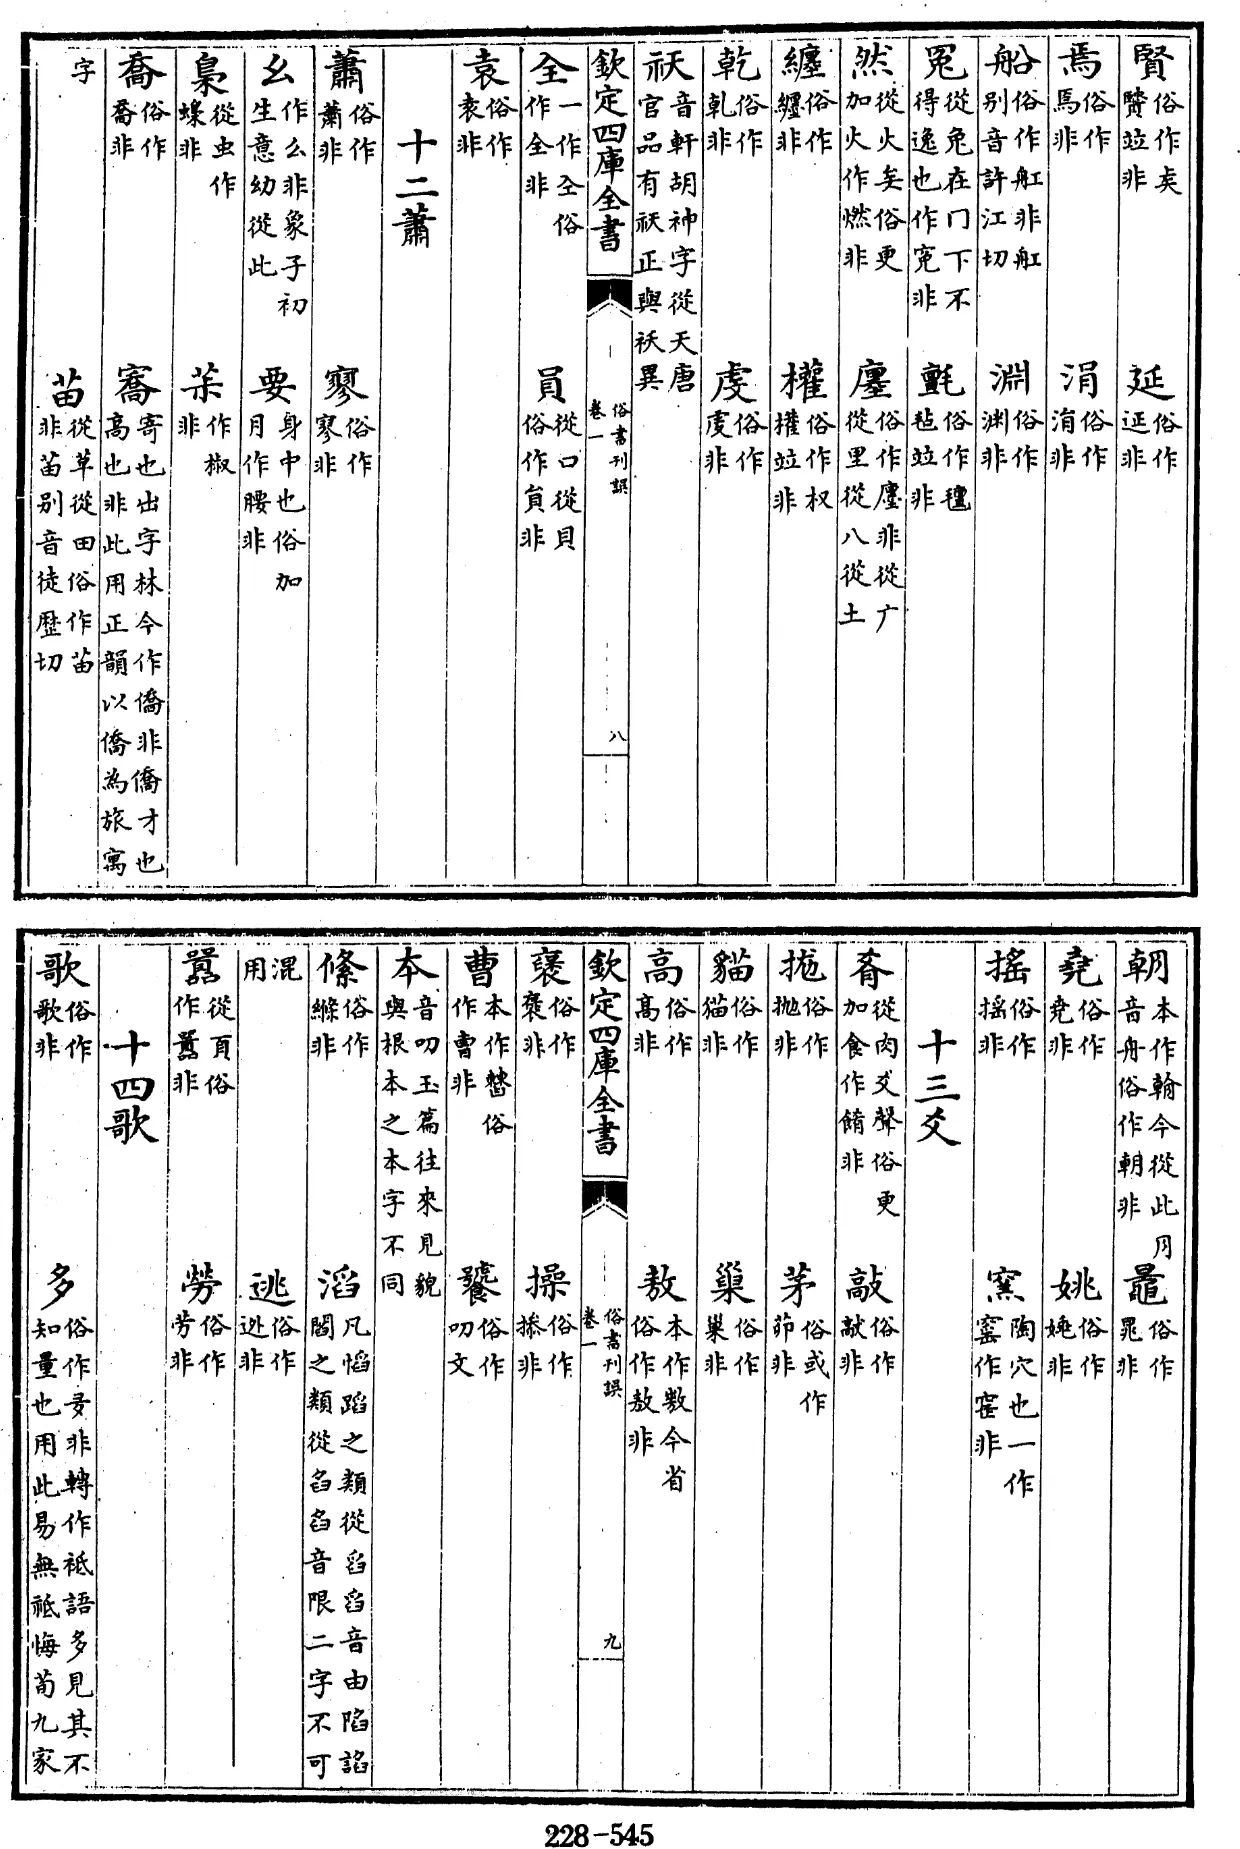 賢俗作矦賛竝非 延俗作𨒂非
焉俗作馬非 涓俗作涓非
船俗作舡非舡别音許江切 淵俗作渊非
冤從兔在冂下不得逸也作寃非 氈俗作氊毡竝非
然從火矣俗更加火作燃非 廛俗作㕓非從广從里從八從土
纏俗作纒非 權俗作权権竝非
乾俗作乹非 虔俗作䖍非
祆音軒胡神字從天唐官品有祆正與祅異
欽定四庫全書
俗書刊誤
卷一
八
全一作仝俗作全非 員從口從貝俗作貟非
袁俗作𡊮非
十二蕭
蕭俗作蕭非 寥俗作寥非
幺作么非象子初生意幼從此 要身中也俗加月作腰非
梟從虫作蟂非 茮作椒非
喬俗作喬非 寯寄也出字林今作僑非僑才也高也非此用正韻以僑為旅寓
字 苗從草從田俗作苗非苖别音徒歴切
朝本作翰今從此月音舟俗作朝非 鼂俗作晁非
堯俗作尭非 姚俗作姚非
搖俗作揺非 窯陶穴也一作窰作窑非
十三爻
肴從肉爻聲俗更加食作餚非 敲俗作敲非
拋俗作抛非 茅俗或作茆非
貓俗作猫非 巢俗作巢非
高俗作髙非 敖本作敖今省俗作敖非
欽定四庫全書
俗書刊誤
卷一
九
襃俗作褒非 操俗作捺非
曹本作㯥俗作曹非 饕俗作叨文
夲音叨玉篇往來見貌與根本之本字不同
絛俗作縧非 滔凡慆蹈之類從舀舀音由陷諂閻之類從臽臽音限二字不可
混用 逃俗作迯非
囂從頁俗作嚚非 勞俗作劳非
十四歌
歌俗作歌非 多俗作夛非轉作祗語多見其不知量也用此易無祗悔荀九家
228-545